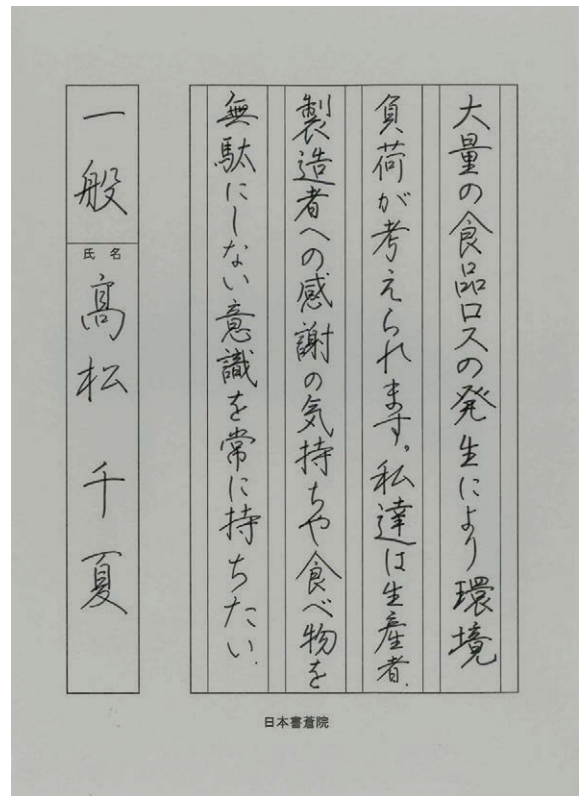 大量の食品ロスの発生により環境
負荷が考えられます。私達は生産者、
製造者への感謝の気持ちや食べ物を
無駄にしない意識を常に持ちたい。
一般
氏名
髙松 千夏
日本書蒼院